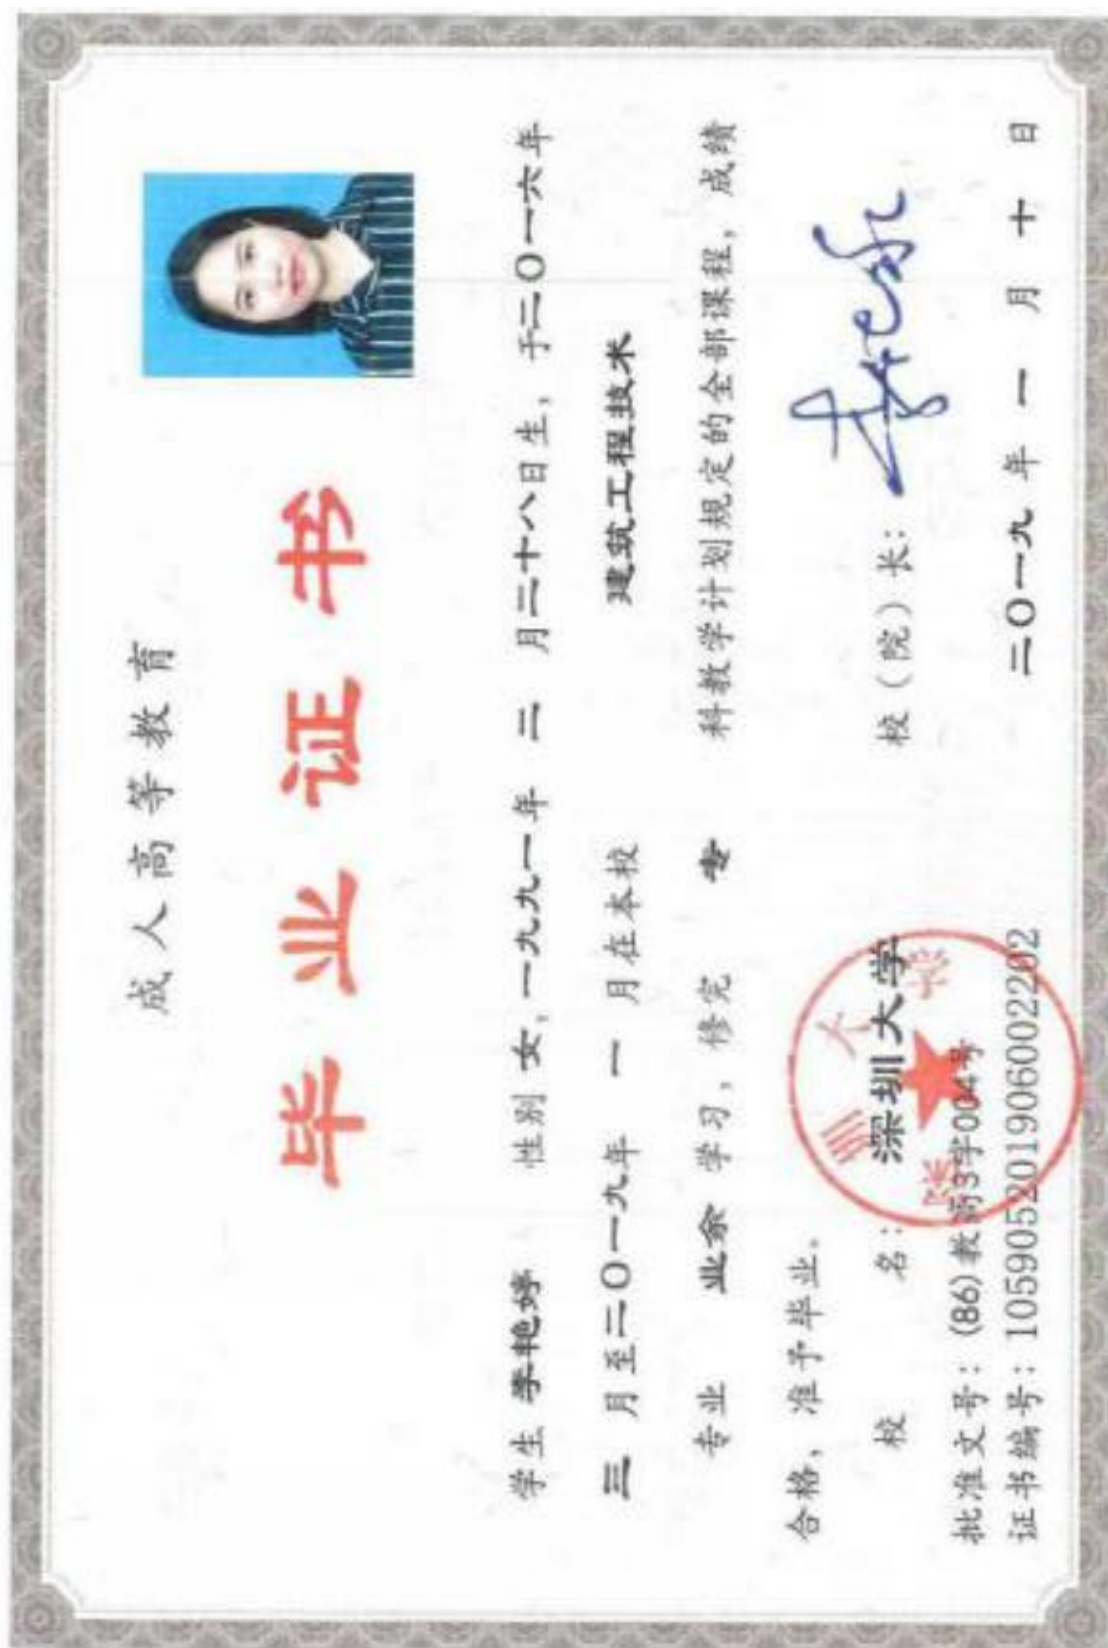 成人高等教育
毕业证书
学生 李艳婷 性别 女，一九九一年 二 月二十八日生，于二〇一六年
三 月至二〇一九年 一 月在本校 建筑工程技术
专业 业余 学习，修完 专 科教学计划规定的全部课程，成绩
合格，准予毕业。
校 名：深圳大学 校（院）长：
批准文号：(86)教高3字004号
证书编号：105905201906002202
二〇一九 年 一 月 十 日
深圳大学